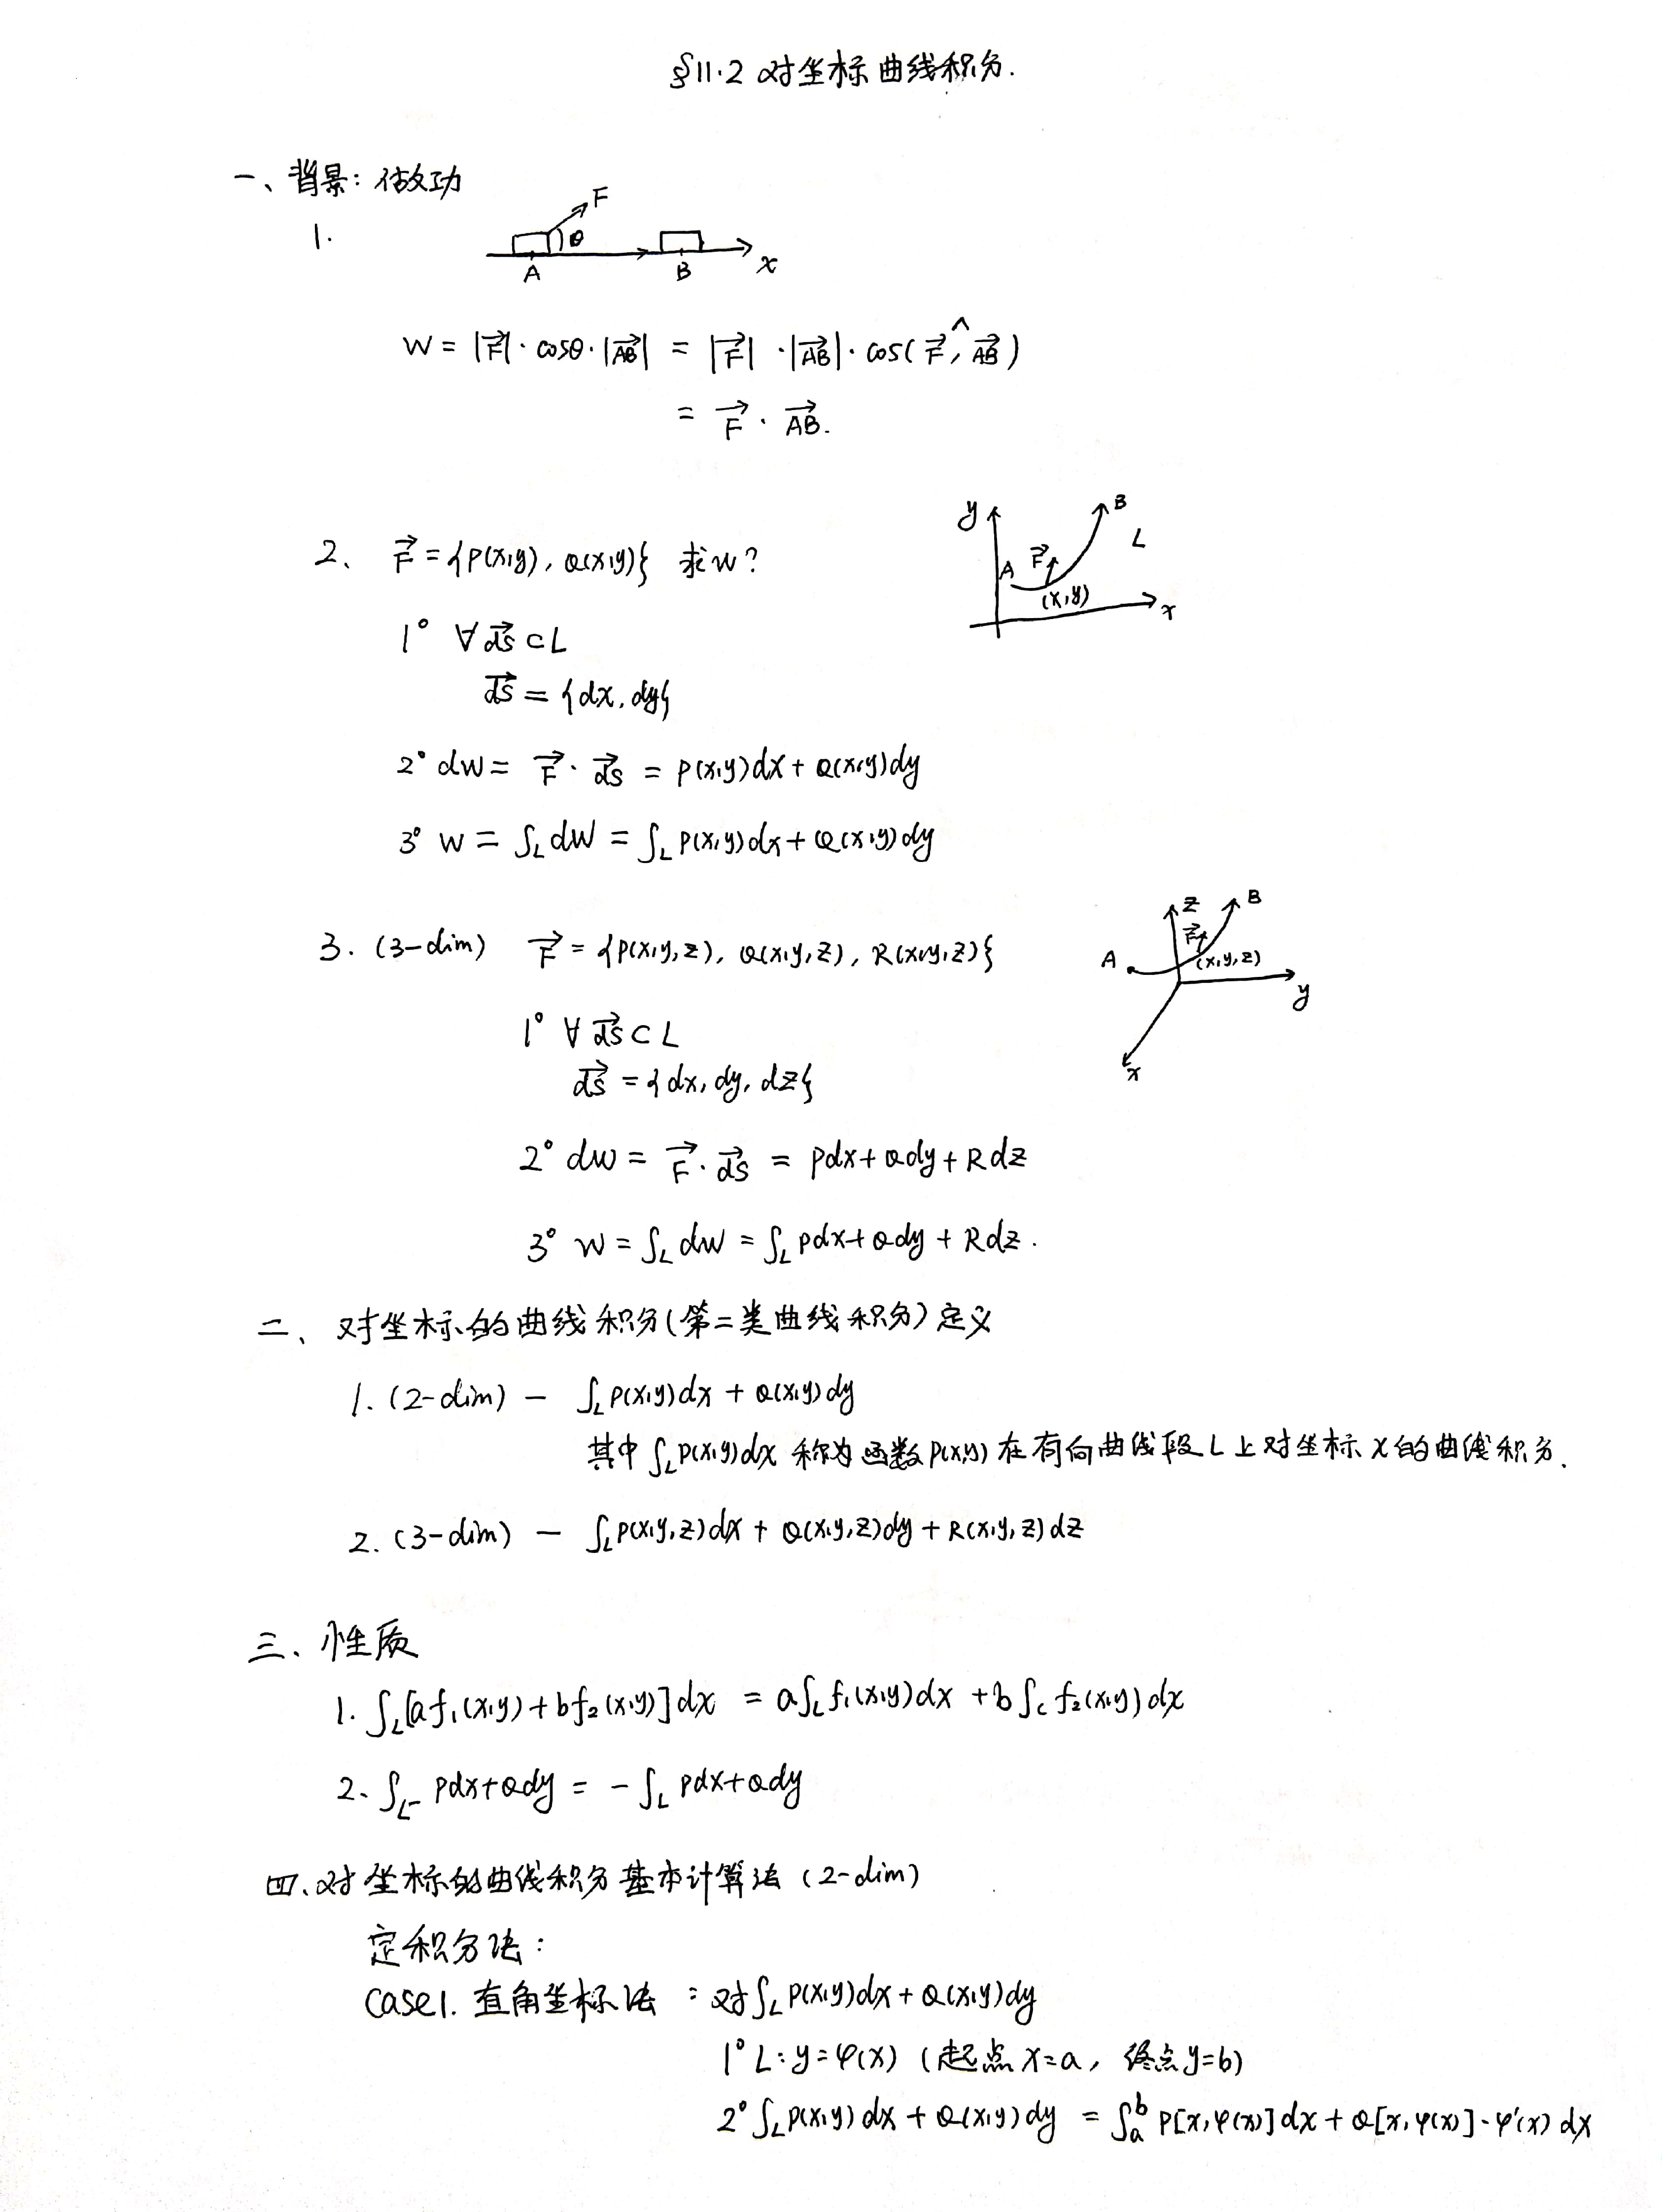 §11.2 对坐标曲线积分.
一、背景: 做功
1.
F
θ
A B x
W = |F⃗|·cosθ·|AB⃗| = |F⃗|·|AB⃗|·cos(F⃗,^AB⃗)
= F⃗ · AB⃗.
y B
L
A F⃗
(x,y)
x
2、 F⃗ = {P(x,y), Q(x,y)} 求w?
1° ∀ds⃗ ⊂ L
ds⃗ = {dx, dy}
2° dw = F⃗·ds⃗ = P(x,y)dx + Q(x,y)dy
3° W = ∫_L dW = ∫_L P(x,y)dx + Q(x,y)dy
z B
F⃗
A (x,y,z)
y
x
3. (3-dim) F⃗ = {P(x,y,z), Q(x,y,z), R(x,y,z)}
1° ∀ds⃗ ⊂ L
ds⃗ = {dx, dy, dz}
2° dw = F⃗·ds⃗ = Pdx + Qdy + Rdz
3° W = ∫_L dw = ∫_L Pdx + Qdy + Rdz.
二、对坐标的曲线积分(第二类曲线积分)定义
1. (2-dim) — ∫_L P(x,y)dx + Q(x,y)dy
其中 ∫_L P(x,y)dx 称为函数P(x,y)在有向曲线段L上对坐标x的曲线积分.
2. (3-dim) — ∫_L P(x,y,z)dx + Q(x,y,z)dy + R(x,y,z)dz
三、性质
1. ∫_L [a f₁(x,y) + b f₂(x,y)]dx = a∫_L f₁(x,y)dx + b∫_L f₂(x,y)dx
2、∫_L⁻ Pdx + Qdy = -∫_L Pdx + Qdy
四、对坐标的曲线积分基本计算法 (2-dim)
定积分法:
case1. 直角坐标法 : 对∫_L P(x,y)dx + Q(x,y)dy
1° L: y = φ(x) (起点x=a, 终点y=b)
2° ∫_L P(x,y)dx + Q(x,y)dy = ∫_a^b P[x,φ(x)]dx + Q[x,φ(x)]·φ'(x)dx